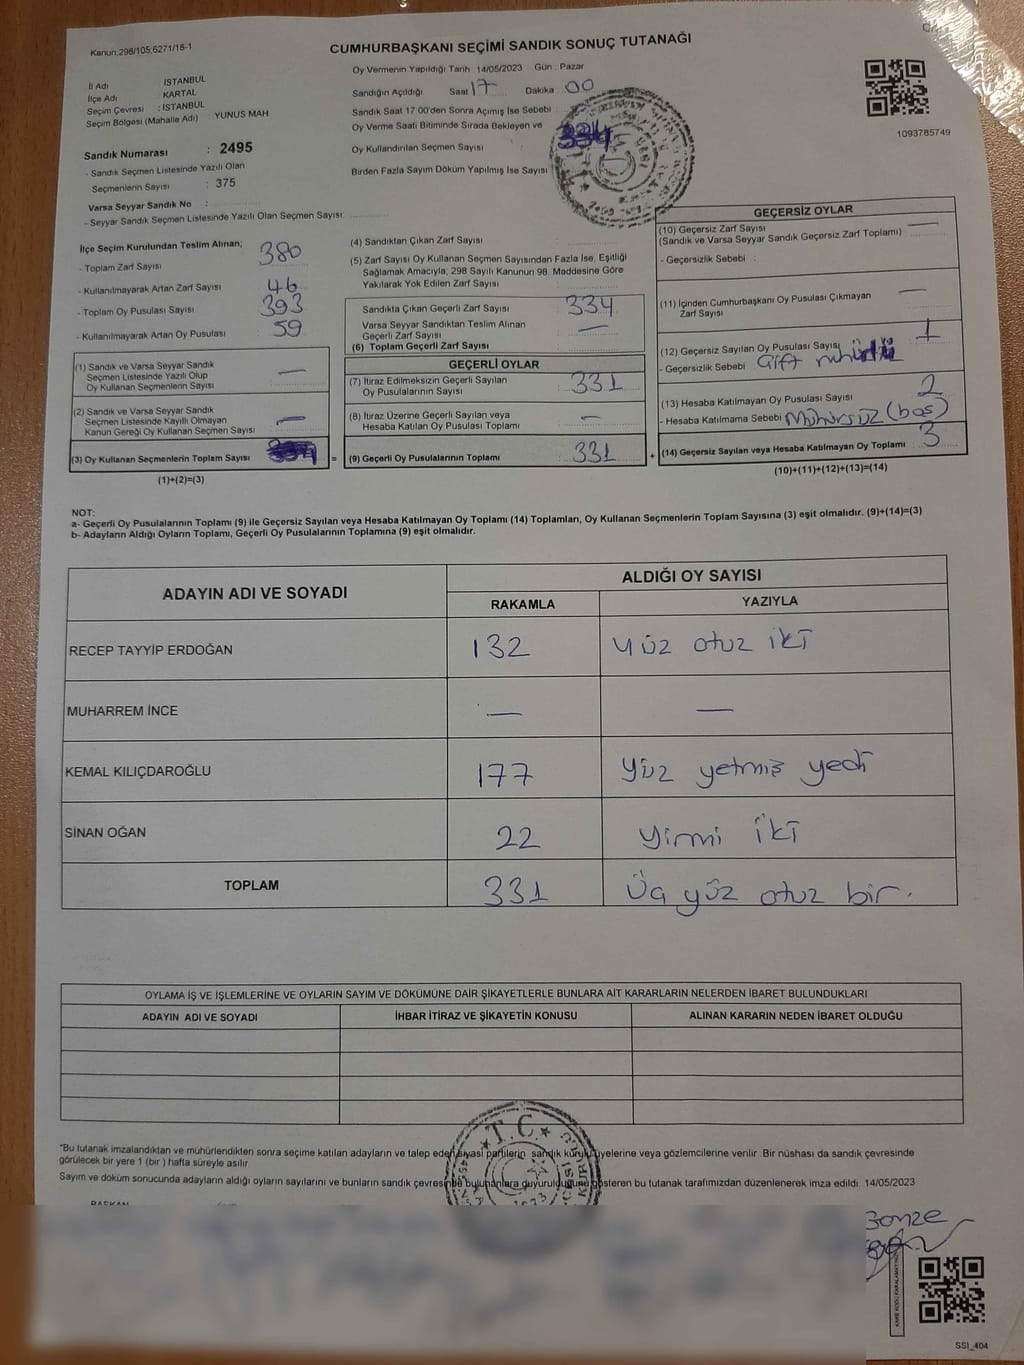 Kanun:298/105;6271/18-1
CUMHURBAŞKANI SEÇİMİ SANDIK SONUÇ TUTANAĞI
İl Adı İSTANBUL
İlçe Adı KARTAL
Seçim Çevresi : İSTANBUL
Seçim Bölgesi (Mahalle Adı) YUNUS MAH
Sandık Numarası : 2495
- Sandık Seçmen Listesinde Yazılı Olan
Seçmenlerin Sayısı : 375
Varsa Seyyar Sandık No :
- Seyyar Sandık Seçmen Listesinde Yazılı Olan Seçmen Sayısı:
Oy Vermenin Yapıldığı Tarih 14/05/2023 Gün : Pazar
Sandığın Açıldığı Saat 17 Dakika : 00
Sandık Saat 17:00'den Sonra Açılmış İse Sebebi :
Oy Verme Saati Bitiminde Sırada Bekleyen ve
Oy Kullandırılan Seçmen Sayısı : 334
Birden Fazla Sayım Döküm Yapılmış İse Sayısı
1093785749
İlçe Seçim Kurulundan Teslim Alınan;
- Toplam Zarf Sayısı 380
- Kullanılmayarak Artan Zarf Sayısı 46
- Toplam Oy Pusulası Sayısı 393
- Kullanılmayarak Artan Oy Pusulası : 59
(1) Sandık ve Varsa Seyyar Sandık
Seçmen Listesinde Yazılı Olup
Oy Kullanan Seçmenlerin Sayısı —
(2) Sandık ve Varsa Seyyar Sandık
Seçmen Listesinde Kayıtlı Olmayan
Kanun Gereği Oy Kullanan Seçmen Sayısı —
(3) Oy Kullanan Seçmenlerin Toplam Sayısı 334 =
(1)+(2)=(3)
(4) Sandıktan Çıkan Zarf Sayısı
(5) Zarf Sayısı Oy Kullanan Seçmen Sayısından Fazla İse, Eşitliği
Sağlamak Amacıyla, 298 Sayılı Kanunun 98. Maddesine Göre
Yakılarak Yok Edilen Zarf Sayısı :
Sandıkta Çıkan Geçerli Zarf Sayısı 334
Varsa Seyyar Sandıktan Teslim Alınan
Geçerli Zarf Sayısı —
(6) Toplam Geçerli Zarf Sayısı
GEÇERLİ OYLAR
(7) İtiraz Edilmeksizin Geçerli Sayılan
Oy Pusulalarının Sayısı 331
(8) İtiraz Üzerine Geçerli Sayılan veya
Hesaba Katılan Oy Pusulası Toplamı —
(9) Geçerli Oy Pusulalarının Toplamı 331 +
GEÇERSİZ OYLAR
(10) Geçersiz Zarf Sayısı
(Sandık ve Varsa Seyyar Sandık Geçersiz Zarf Toplamı) —
- Geçersizlik Sebebi :
(11) İçinden Cumhurbaşkanı Oy Pusulası Çıkmayan
Zarf Sayısı —
(12) Geçersiz Sayılan Oy Pusulası Sayısı 1
- Geçersizlik Sebebi Çift mühürlü
(13) Hesaba Katılmayan Oy Pusulası Sayısı 2
- Hesaba Katılmama Sebebi Mühürsüz (boş)
(14) Geçersiz Sayılan veya Hesaba Katılmayan Oy Toplamı 3
(10)+(11)+(12)+(13)=(14)
NOT:
a- Geçerli Oy Pusulalarının Toplamı (9) ile Geçersiz Sayılan veya Hesaba Katılmayan Oy Toplamı (14) Toplamları, Oy Kullanan Seçmenlerin Toplam Sayısına (3) eşit olmalıdır. (9)+(14)=(3)
b- Adayların Aldığı Oyların Toplamı, Geçerli Oy Pusulalarının Toplamına (9) eşit olmalıdır.
ADAYIN ADI VE SOYADI ALDIĞI OY SAYISI
RAKAMLA YAZIYLA
RECEP TAYYİP ERDOĞAN 132 Yüz otuz iki
MUHARREM İNCE — —
KEMAL KILIÇDAROĞLU 177 Yüz yetmiş yedi
SİNAN OĞAN 22 Yirmi iki
TOPLAM 331 Üç yüz otuz bir.
OYLAMA İŞ VE İŞLEMLERİNE VE OYLARIN SAYIM VE DÖKÜMÜNE DAİR ŞİKAYETLERLE BUNLARA AİT KARARLARIN NELERDEN İBARET BULUNDUKLARI
ADAYIN ADI VE SOYADI İHBAR İTİRAZ VE ŞİKAYETİN KONUSU ALINAN KARARIN NEDEN İBARET OLDUĞU
T.C.
*Bu tutanak imzalandıktan ve mühürlendikten sonra seçime katılan adayların ve talep eden siyasi partilerin sandık kurulu üyelerine veya gözlemcilerine verilir. Bir nüshası da sandık çevresinde
görülecek bir yere 1 (bir) hafta süreyle asılır.
Sayım ve döküm sonucunda adayların aldığı oyların sayılarını ve bunların sandık çevresinde bulunanlara duyurulduğunu gösteren bu tutanak tarafımızdan düzenlenerek imza edildi. 14/05/2023
BAŞKAN
SSI_404